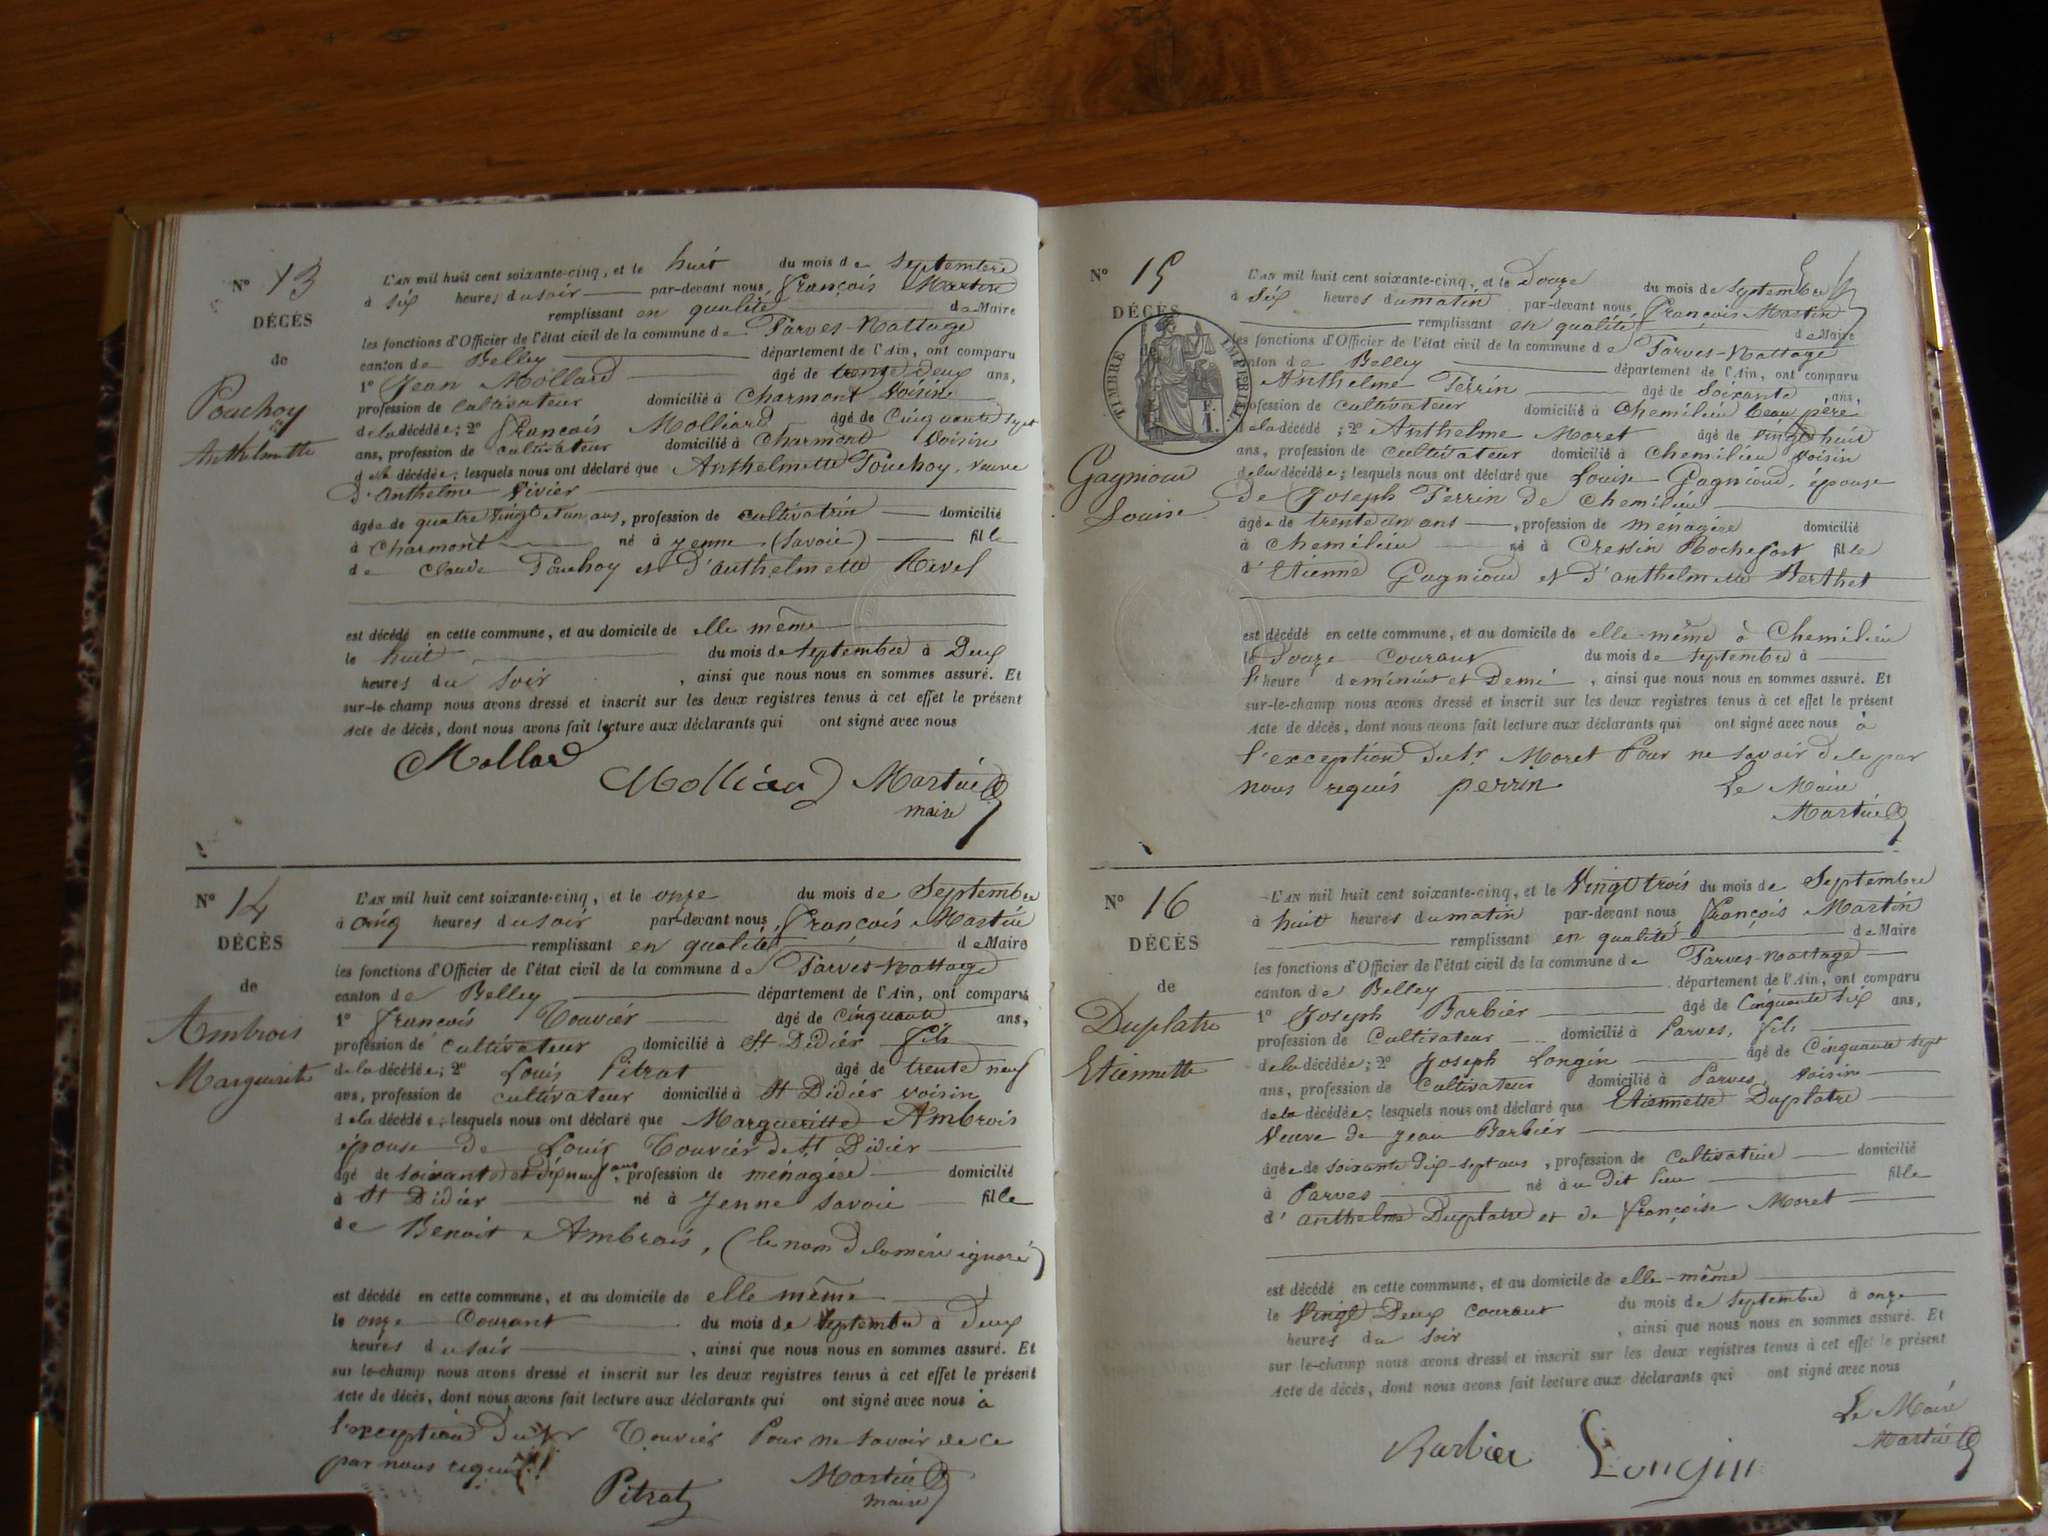 N° 13
DÉCÈS
de
Pouchoy
Anthelmette
L'AN mil huit cent soixante-cinq, et le huit du mois de Septembre
à Six heures du soir par-devant nous, François Martin
remplissant en qualité de Maire
les fonctions d'Officier de l'état civil de la commune de Parves-Nattage
canton de Belley département de l'Ain, ont comparu
1° Jean Mollard âgé de trente deux ans,
profession de Cultivateur domicilié à Charmont Voisin
de la décédée; 2° François Molliard âgé de Cinquante sept
ans, profession de cultivateur domicilié à Charmont Voisin
de la décédée; lesquels nous ont déclaré que Anthelmette Pouchoy, veuve
D'anthelme Vivier
âgée de quatre vingt et un ans, profession de cultivatrice domicilié
à Charmont né à yenne (Savoie) fille
de Claude Pouchoy et D'anthelmette Revel
est décédé en cette commune, et au domicile de elle même
le huit du mois de septembre à Deux
heures du soir, ainsi que nous nous en sommes assuré. Et
sur-le-champ nous avons dressé et inscrit sur les deux registres tenus à cet effet le présent
Acte de décès, dont nous avons fait lecture aux déclarants qui ont signé avec nous
Mollard
Molliard Martin
maire
N° 14
DÉCÈS
de
Ambrois
Marguerite
L'AN mil huit cent soixante-cinq, et le onze du mois de Septembre
à Cinq heures du soir par-devant nous, François Martin
remplissant en qualité de Maire
les fonctions d'Officier de l'état civil de la commune de Parves-Nattage
canton de Belley département de l'Ain, ont comparu
1° François Touvier âgé de cinquante ans,
profession de cultivateur domicilié à St Didier fils
de la décédée; 2° Louis Pitrat âgé de trente neuf
ans, profession de cultivateur domicilié à St Didier voisin
de la décédée; lesquels nous ont déclaré que Margueritte Ambrois
épouse de Louis Touvier de St Didier
âgé de soixante et dix neuf ans, profession de ménagère domicilié
à St Didier né à Yenne Savoie fille
de Benoit Ambrois, (le nom de la mère ignoré)
est décédé en cette commune, et au domicile de elle même
le onze Courant du mois de Septembre à Deux
heures du soir, ainsi que nous nous en sommes assuré. Et
sur le-champ nous avons dressé et inscrit sur les deux registres tenus à cet effet le présent
Acte de décès, dont nous avons fait lecture aux déclarants qui ont signé avec nous à
l'exception Du Sr Touvier Pour ne savoir de ce
par nous requis
Pitrat Martin
maire
N° 15
DÉCÈS
de
TIMBRE IMPÉRIAL
F.
1.
Gagnioud
Louise
L'AN mil huit cent soixante-cinq, et le Douze du mois de Septembre
à Six heures du matin par-devant nous François Martin
remplissant en qualité de Maire
les fonctions d'Officier de l'état civil de la commune de Parves-Nattage
canton de Belley département de l'Ain, ont comparu
Anthelme Perrin âgé de Soixante ans,
profession de cultivateur domicilié à Chemilieu beau père
de la décédé; 2° Anthelme Moret âgé de vingt huit
ans, profession de cultivateur domicilié à Chemilieu voisin
de la décédée; lesquels nous ont déclaré que Louise Gagnioud, épouse
De Joseph Perrin de Chemilieu
âgée de trente un ans, profession de menagère domicilié
à Chemilieu né à Cressin Rochefort fille
d'Etienne Gagnioud et d'anthelmette Berthet
est décédé en cette commune, et au domicile de elle-même à Chemilieu
le Douze courant du mois de septembre à
l'heure de minuit et Demi, ainsi que nous nous en sommes assuré. Et
sur-le-champ nous avons dressé et inscrit sur les deux registres tenus à cet effet le présent
Acte de décès, dont nous avons fait lecture aux déclarants qui ont signé avec nous à
l'exception du Sr Moret Pour ne savoir de le par
nous requis perrin Le Maire
Martin
N° 16
DÉCÈS
de
Duplatre
Etiennette
L'AN mil huit cent soixante-cinq, et le Vingt trois du mois de Septembre
à huit heures du matin par-devant nous François Martin
remplissant en qualité de Maire
les fonctions d'Officier de l'état civil de la commune de Parves-Nattage
canton de Belley département de l'Ain, ont comparu
1° Joseph Barbier âgé de Cinquante six ans,
profession de Cultivateur domicilié à Parves, fils
de la décédée; 2° Joseph Longin âgé de Cinquante sept
ans, profession de Cultivateur domicilié à Parves, voisin
de la décédée; lesquels nous ont déclaré que Etiennette Duplatre
Veuve de Jean Barbier
âgée de soixante dix-sept ans, profession de Cultivatrice domicilié
à Parves né au dit lieu fille
d'anthelme Duplatre et de Françoise Moret
est décédé en cette commune, et au domicile de elle-même
le Vingt Deux courant du mois de septembre à onze
heures du soir, ainsi que nous nous en sommes assuré. Et
sur le-champ nous avons dressé et inscrit sur les deux registres tenus à cet effet le présent
Acte de décès, dont nous avons fait lecture aux déclarants qui ont signé avec nous
Le Maire
Barbier Longin Martin